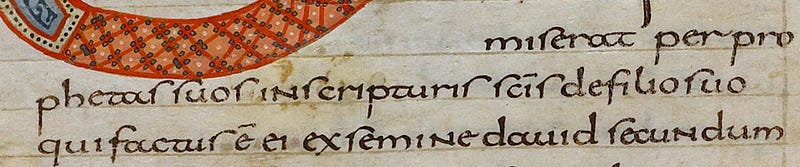 miserat per pro
phetas suos inscripturis scīs defilio suo
qui factus ē ei exsemine dauid secundum